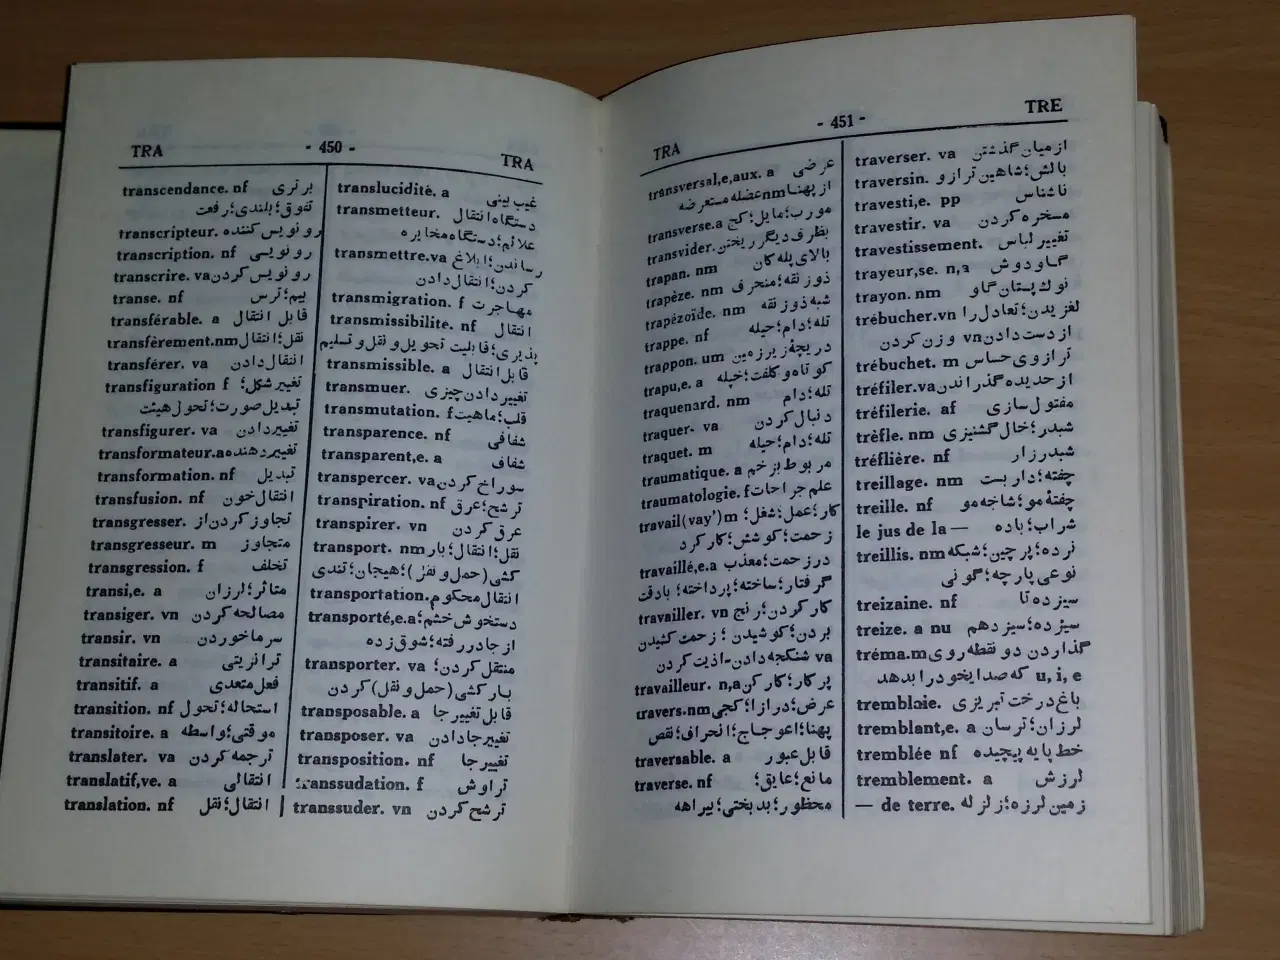 TRA - 450 - TRA
transcendance. nf برتری
تفوق؛بلندی؛رفعت
transcripteur. رونویس‌کننده
transcription. nf رونویسی
transcrire. va رونویس‌کردن
transe. nf بیم؛ترس
transférable. a قابل انتقال
transfèrement.nm نقل؛انتقال
transférer. va انتقال‌دادن
transfiguration f تغییرشکل؛
تبدیل صورت؛تحول هیئت
transfigurer. va تغییردادن
transformateur.a تغییردهنده
transformation. nf تبدیل
transfusion. nf انتقال‌خون
transgresser. تجاوز کردن‌از
transgresseur. m متجاوز
transgression. f تخلف
transi,e. a متاثر؛لرزان
transiger. vn مصالحه‌کردن
transir. vn سرماخوردن
transitaire. a ترانزیتی
transitif. a فعل‌متعدی
transition. nf استحاله؛تحول
transitoire. a موقتی؛واسطه
translater. va ترجمه‌کردن
translatif,ve. a انتقالی
translation. nf انتقال؛نقل
translucidité. a غیب‌بینی
transmetteur. دستگاه‌انتقال
علائم؛دستگاه‌مخابره
transmettre.va رساندن؛ابلاغ
کردن؛انتقال‌دادن
transmigration. f مهاجرت
transmissibilite. nf انتقال
پذیری؛قابلیت تحویل‌ونقل‌وتسلیم
transmissible. a قابل‌انتقال
transmuer. تغییردادن‌چیزی
transmutation. f قلب؛ماهیت
transparence. nf شفافی
transparent,e. a شفاف
transpercer. va سوراخ‌کردن
transpiration. nf ترشح؛عرق
transpirer. vn عرق‌کردن
transport. nm نقل؛انتقال؛بار
کشی(حمل‌ونقل)؛هیجان؛تندی
transportation. انتقال‌محکوم
transporté,e.a دستخوش‌خشم؛
ازجادررفته؛شوق‌زده
transporter. va منتقل‌کردن؛
بارکشی(حمل و نقل)کردن
transposable. a قابل‌تغییرجا
transposer. va تغییرجادادن
transposition. nf تغییرجا
transsudation. f تراوش
transsuder. vn ترشح‌کردن
TRA - 451 - TRE
transversal,e,aux. a عرضی
ازپهنا nm عضله مستعرضه
transverse.a مورب؛مایل؛کج
transvider. بظرف‌دیگرریختن
trapan. nm بالای‌پله‌کان
trapèze. nm ذوزنقه؛منحرف
trapézoïde. nm شبه‌ذوزنقه
trappe. nf تله؛دام؛حیله
trappon. um دریچهٔ‌زیرزمین
trapu,e. a کوتاه‌وکلفت؛خپله
traquenard. nm تله؛دام
traquer. va دنبال‌کردن
traquet. m تله؛دام؛حیله
traumatique. a مربوط‌بزخم
traumatologie. f علم‌جراحات
travail(vay') m کار؛عمل؛شغل؛
زحمت؛کوشش؛کارکرد
travaillé,e.a درزحمت؛معذب
گرفتار؛ساخته؛پرداخته؛بادقت
travailler. vn کارکردن؛رنج
بردن؛کوشیدن؛زحمت‌کشیدن
va شنکجه‌دادن-اذیت‌کردن
travailleur. n,a پرکار؛کارکن
travers.nm عرض؛درازا؛کجی
پهنا؛اعوجاج؛انحراف؛نقص
traversable. a قابل‌عبور
traverse. nf مانع؛عایق؛
محظور؛بدبختی؛بیراهه
traverser. va ازمیان‌گذشتن
traversin. بالش؛شاهین‌ترازو
travesti,e. pp ناشناس
travestir. va مسخره‌کردن
travestissement. تغییرلباس
trayeur,se. n,a گاودوش
trayon. nm نوك‌پستان‌گاو
trébucher.vn لغزیدن؛تعادل‌را
ازدست‌دادن vn وزن‌کردن
trébuchet. m ترازوی‌حساس
tréfiler.va ازحدیده‌گذراندن
tréfilerie. af مفتول‌سازی
trèfle. nm شبدر؛خال‌گشنیزی
tréflière. nf شبدرزار
treillage. nm چفته؛داربست
treille. nf چفتهٔ‌مو؛شاخه‌مو
le jus de la — شراب؛باده
treillis. nm نرده؛پرچین؛شبکه
نوعی پارچه؛گونی
treizaine. nf سیزده‌تا
treize. a nu سیزده؛سیزدهم
tréma.m گذاردن دو نقطه‌روی
u, i, e که‌صدایخودرابدهد
tremblaie. باغ‌درخت‌تبریزی
tremblant,e. a لرزان؛ترسان
tremblée nf خط‌پایه‌پیچیده
tremblement. a لرزش
— de terre. زمین‌لرزه؛زلزله